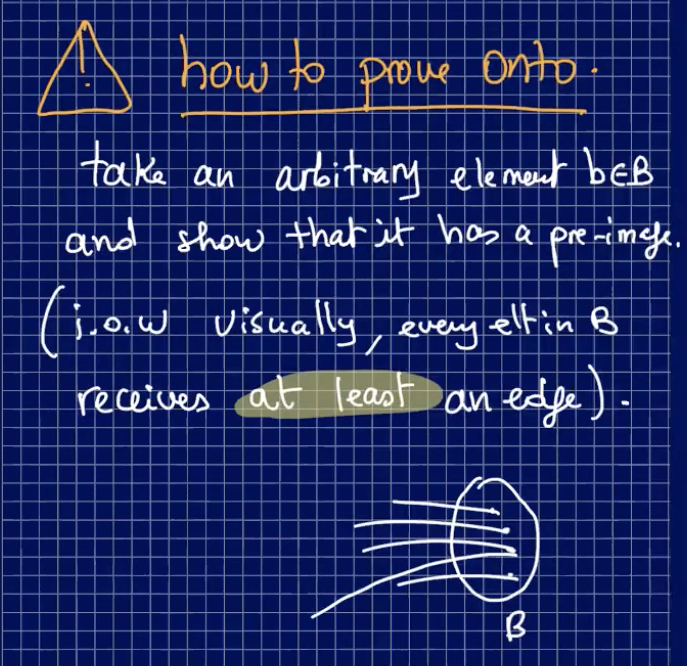 ! how to prove onto.
take an arbitrary element b∈B
and show that it has a pre-image.
(i.o.w visually, every elt in B
receives at least an edge).
B